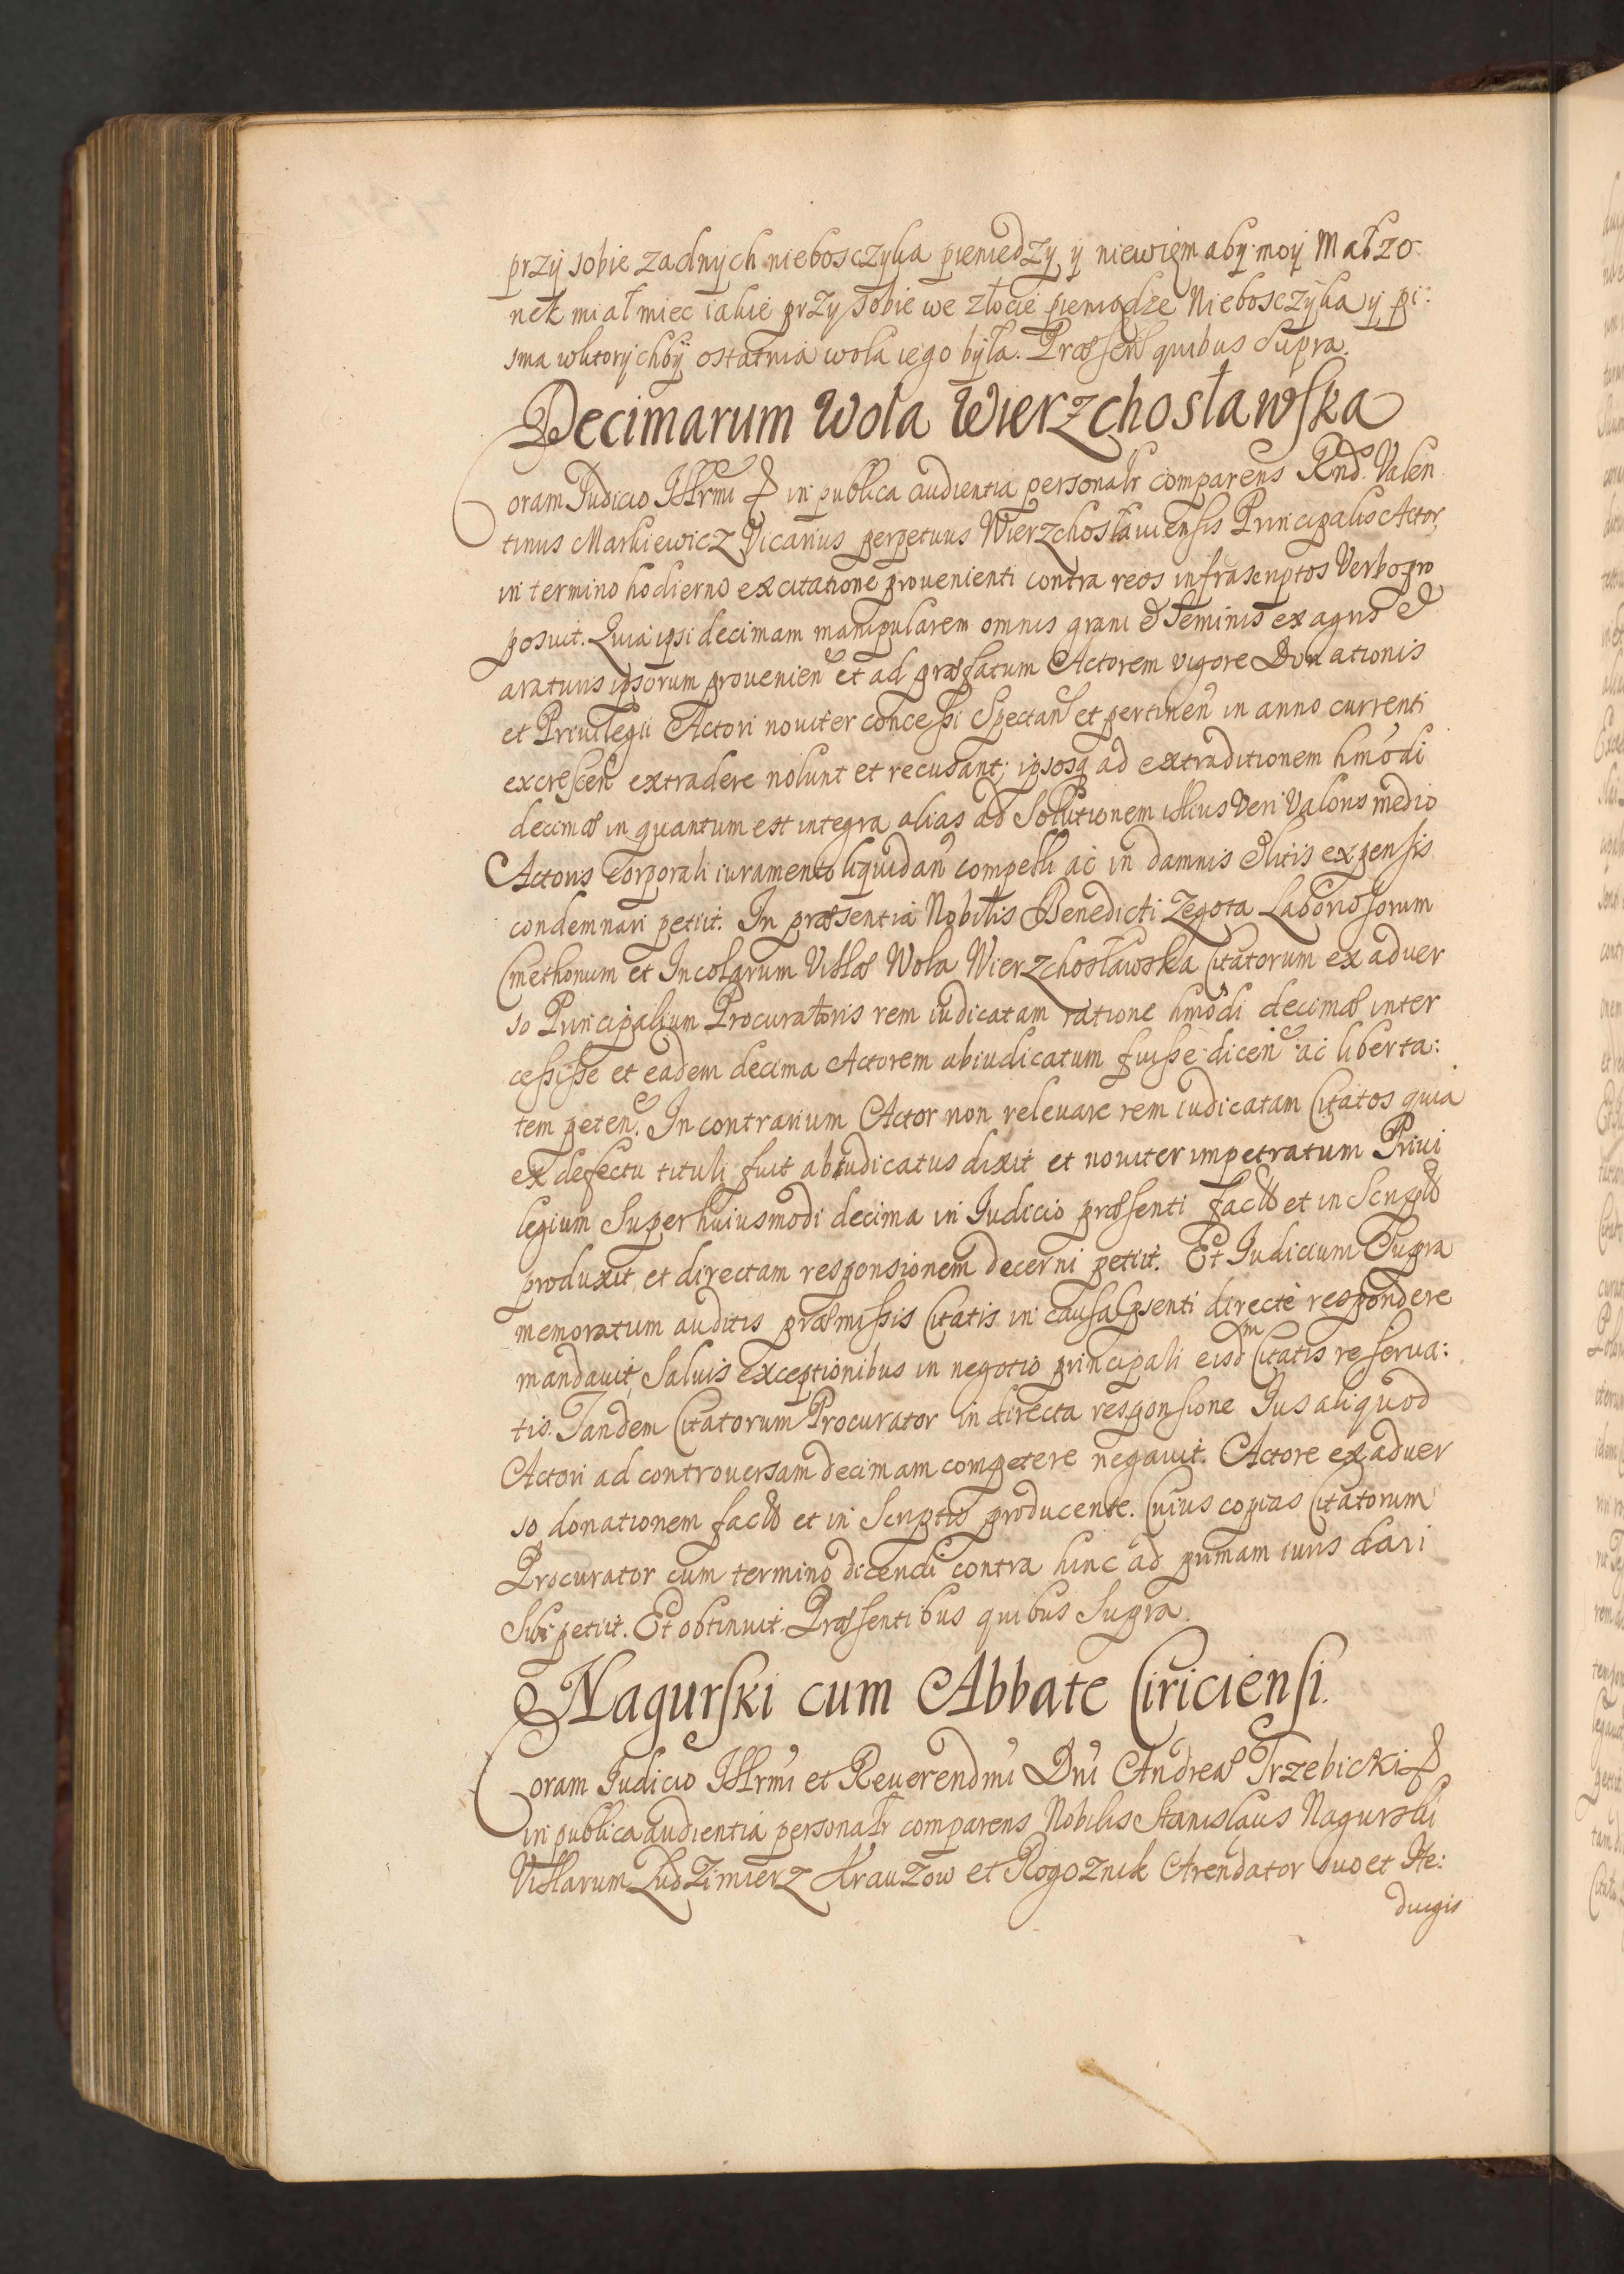 przÿ sobie zadnÿch niebosczyka pieniedzy ÿ niewięm abÿ moÿ Małzo
nek miał miec iakie przy sobie we złocie pieniądze Niebosczyka ÿ pi:
sma wktorÿchbÿ ostatnia wola iego bÿła. Præsen quibus supra.
Decimarum Wola Wierzchosławska
Coram Iudicio Illrmi & in publica audientia personalr comparens Rnd. Valen
tinus Markiewicz Vicarius perpetuus Wierzchosłauiensis Principalis Actor,
in termino hodierno ex citatione prouenienti contra reos infrascriptos Verbo pro
posuit. Quia ipsi decimam manipularem omnis grani et seminis ex agris et
araturis ipsorum prouenien et ad præfatum Actorem vigore Donationis
et Priuilegii Actori nouiter concessi Spectan et pertinen in anno currenti
excrescen extradere nolunt et recusant; ipsosq ad extraditionem hmodi
decimæ in quantum est integra alias ad Solutionem illius Veri Valoris medio
Actoris Corporali iuramento liquidan compelli ac in damnis et litis expensis
condemnari petiit. In præsentia Nobilis Benedicti Zegota Laboriosorum
Cmethonum et Incolarum Villæ Wola Wierzchosławska Citatorum ex aduer
so Principalium Procuratoris rem iudicatam ratione hmodi decimæ inter
cessisse et eadem decima Actorem abiudicatum fuisse dicen ac liberta:
tem peten. In contrarium Actor non releuare rem iudicatam Citatos quia
ex defectu tituli fuit abiudicatus dixit et nouiter impetratum Priui
legium Super huiusmodi decima in Iudicio præsenti facto et in Scripto
produxit, et directam responsionem decerni petiit. Et Iudicium Supra
memoratum auditis præmissis Citatis in causa psenti directe respondere
mandauit, Saluis exceptionibus in negotio principali eisdm Citatis reserua:
tis. Tandem Citatorum Procurator in directa responsione Ius aliquod
Actori ad controuersam decimam competere negauit. Actore ex aduer
so donationem facto et in Scriptis producente. Cuius copias Citatorum
Procurator cum termino dicendi contra hinc ad primam iuris dari
Sibi petiit. Et obtinuit. Præsentibus quibus Supra.
Nagurski cum Abbate Ciriciensi.
Coram Iudicio Illrmi et Reuerendmi Dni Andreæ Trzebicki &
in publica audientia personalr comparens Nobilis Stanislaus Nagurski
Villarum Ludzimierz Krauzow et Rogoznik Arendator suo et He:
duigis